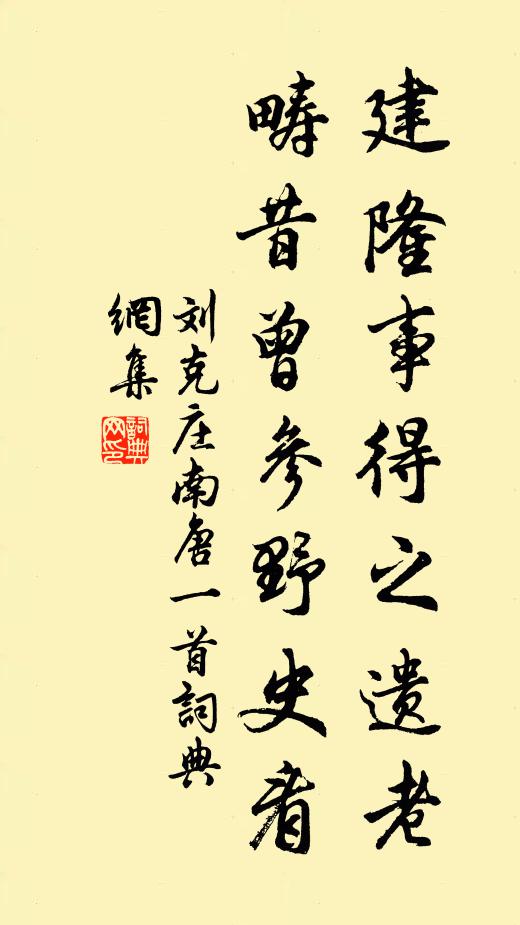 建隆事得之遗老
畴昔曾參野史看
刘克庄南唐一首詞典
網集
詞典
网印